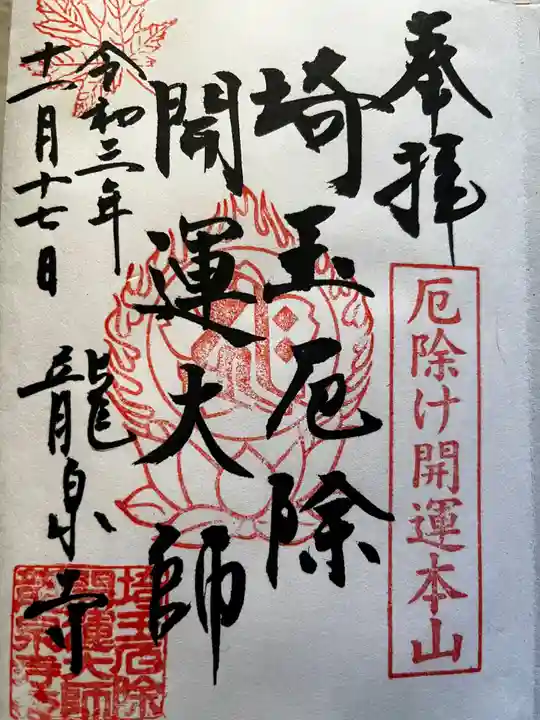 奉拝
厄除け開運本山
埼玉厄除
開運大師
令和三年
十一月十七日
龍泉寺
埼玉厄除
開運大師
龍泉寺